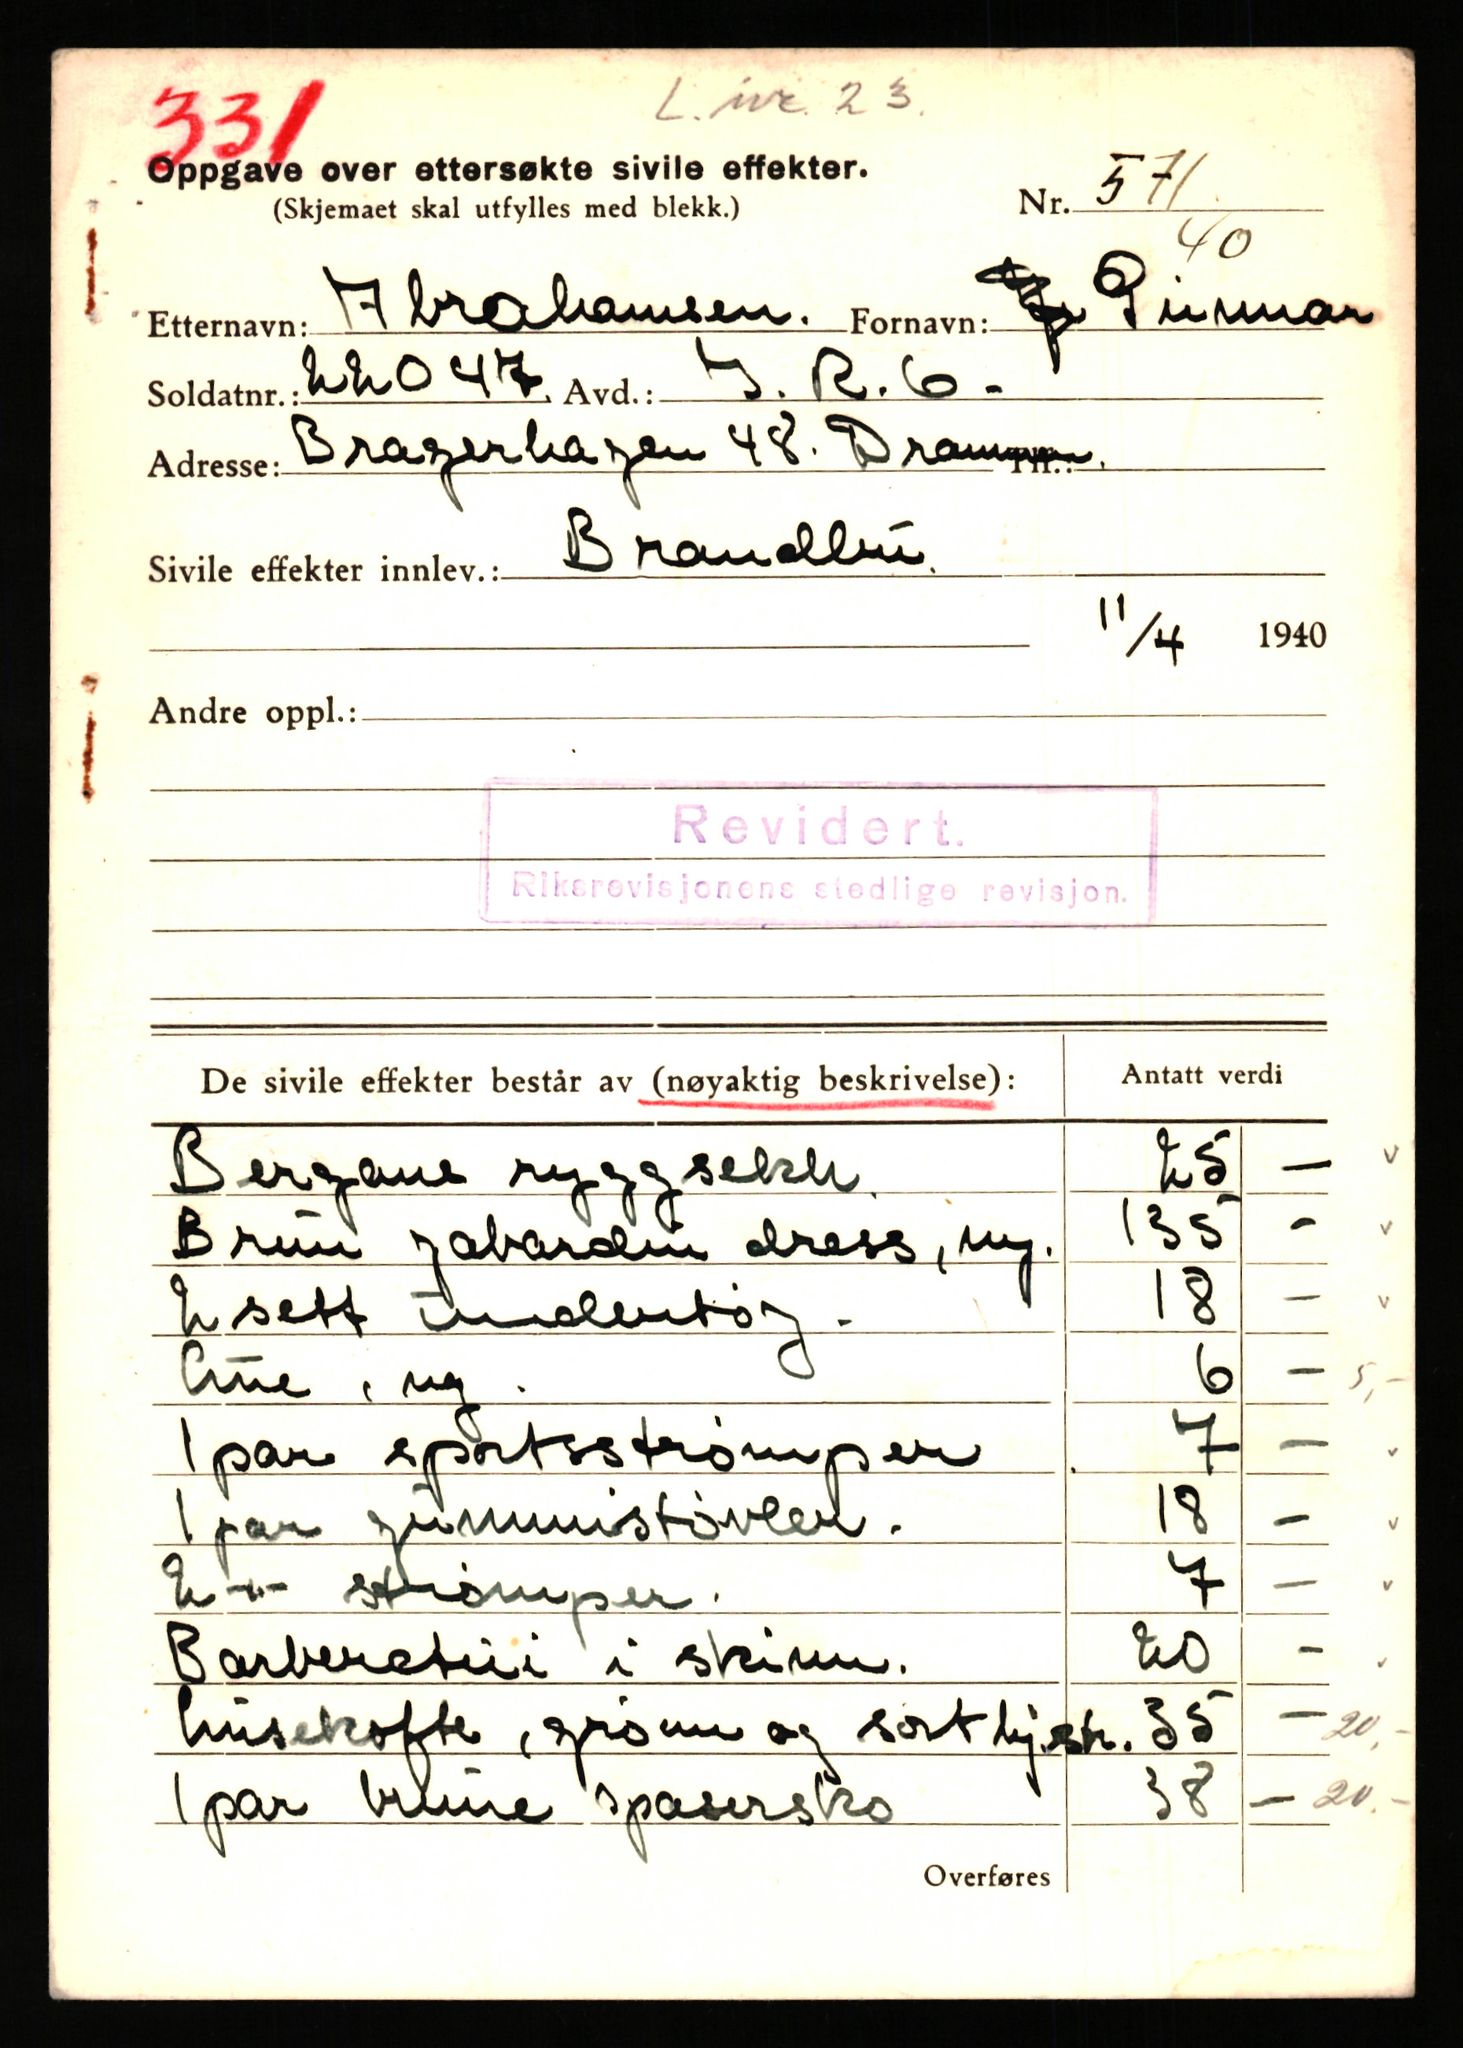 331
L. nr. 23.
Oppgave over ettersøkte sivile effekter.
(Skjemaet skal utfylles med blekk.)
Nr. 571
40
Etternavn: Abrahamsen. Fornavn: Gunnar
Soldatnr.: 22047. Avd.: I. R. 6 -
Adresse: Bragerhagen 48. Drammen. Tlf.:
Sivile effekter innlev.: Brandbu.
11/4 1940
Andre oppl.:
Revidert.
Riksrevisjonens stedlige revisjon.
De sivile effekter består av (nøyaktig beskrivelse): Antatt verdi
Bergans ryggsekk. 25 — v
Brun gabardin dress, ny. 135 - v
2 sett undertøy. 18 — v
Lue, ny. 6 — 5,-
1 par sportsstrømper 7 — v
1 par gummistøvler. 18 — v
2 -"- strømper. 7 — v
Barberetui i skinn. 20 - v
Lusekofte, grønn og sort hj.str. 35 — 20,-
1 par brune spasersko 38 — 20.-
Overføres